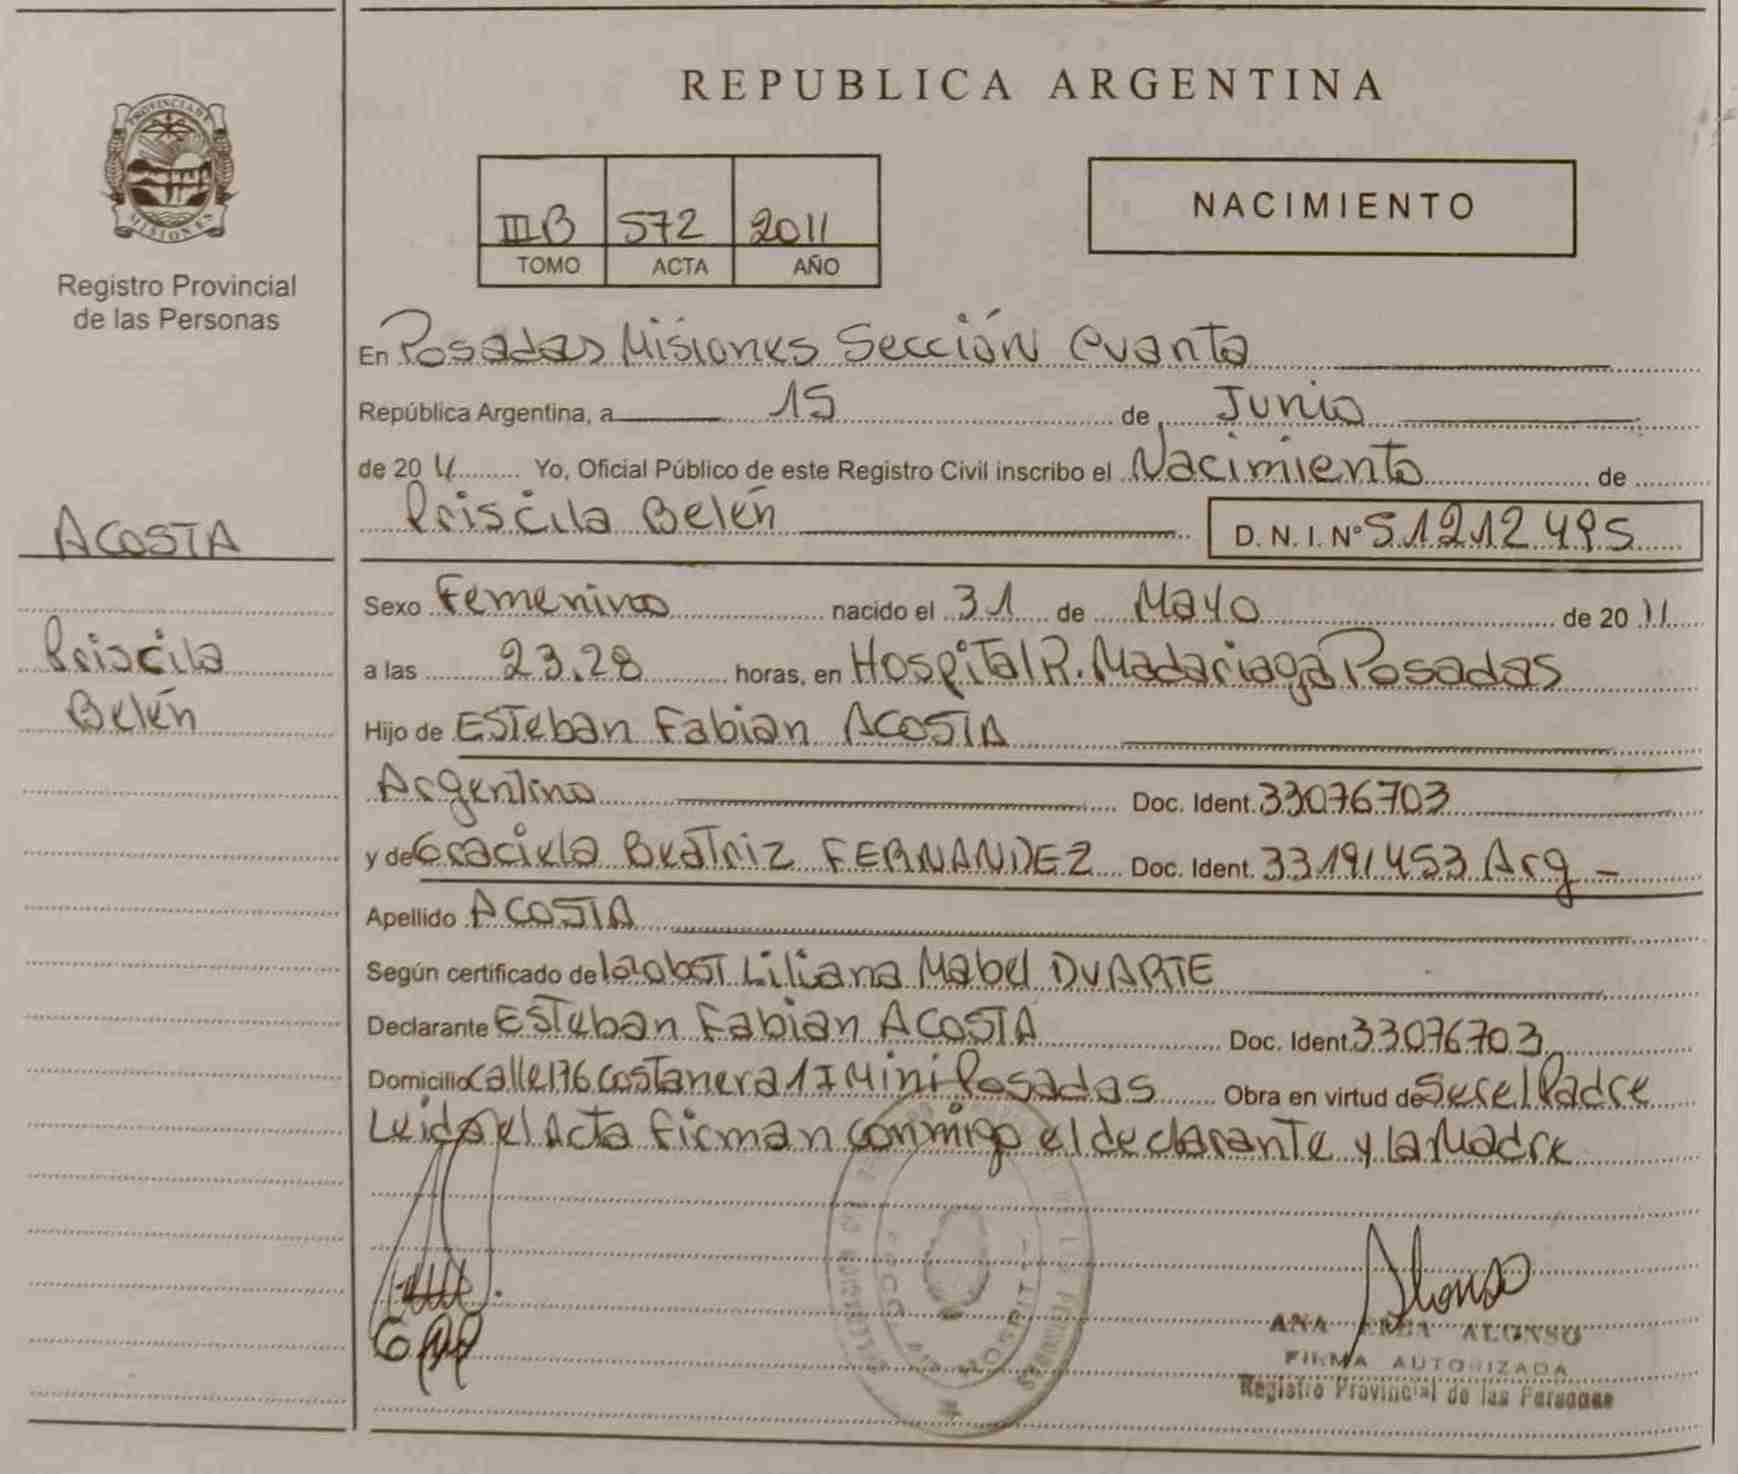 PROVINCIA DE
MISIONES
Registro Provincial
de las Personas
ACOSTA
Priscila
Belén
REPUBLICA ARGENTINA
III B 572 2011
TOMO ACTA AÑO
NACIMIENTO
En Posadas Misiones Sección Cuarta
República Argentina, a 15 de Junio
de 2011 Yo, Oficial Público de este Registro Civil inscribo el Nacimiento de
Priscila Belén D. N. I. Nº 51212495
Sexo Femenino nacido el 31 de Mayo de 2011
a las 23.28 horas, en Hospital R. Madariaga Posadas
Hijo de Esteban Fabian ACOSTA
Argentino Doc. Ident. 33076703
y de Graciela Beatriz FERNANDEZ Doc. Ident. 33191453 Arg -
Apellido ACOSTA
Según certificado de la obst Liliana Mabel DUARTE
Declarante Esteban Fabian ACOSTA Doc. Ident. 33076703
Domicilio calle 176 costanera Posadas Obra en virtud de Ser el Padre
Leida el Acta firman conmigo el declarante y la Madre
Alonso
ANA ALONSO
FIRMA AUTORIZADA
Registro Provincial de las Personas